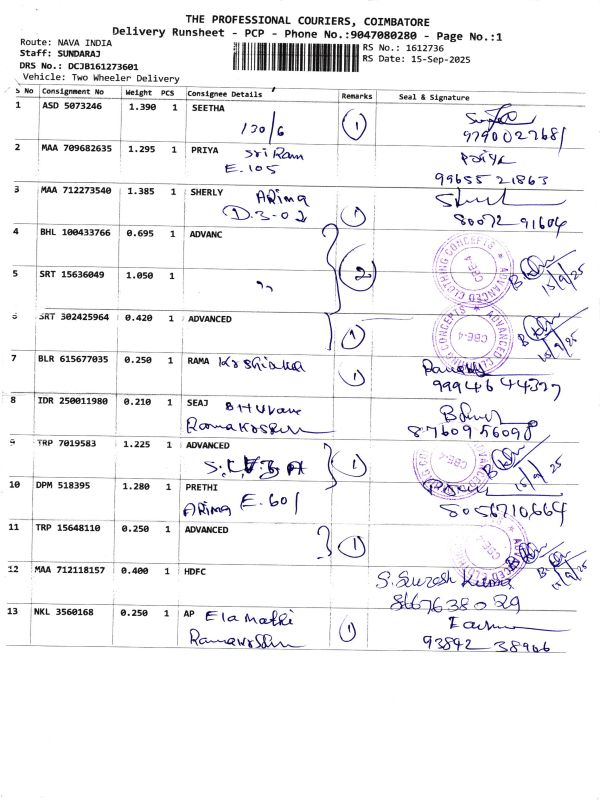 THE PROFESSIONAL COURIERS, COIMBATORE
Delivery Runsheet - PCP - Phone No.:9047080280 - Page No.:1
Route: NAVA INDIA
Staff: SUNDARAJ
DRS No.: DCJB161273601
Vehicle: Two Wheeler Delivery
RS No.: 1612736
RS Date: 15-Sep-2025
S No Consignment No Weight PCS Consignee Details Remarks Seal & Signature
1 ASD 5073246 1.390 1 SEETHA
130/6 1 9790027681
2 MAA 709682635 1.295 1 PRIYA Sri Ram Priya
E.105 99655 21863
3 MAA 712273540 1.385 1 SHERLY Arima
D.3-02 1 80072 91604
4 BHL 100433766 0.695 1 ADVANC 2 ADVANCED CLOTHING CONCEPTS CBE-4 15/9/25
5 SRT 15636049 1.050 1 "
6 SRT 302425964 0.420 1 ADVANCED 1 ADVANCED CLOTHING CONCEPTS CBE-4 15/9/25
7 BLR 615677035 0.250 1 RAMA Krshiaka 1
99946 44377
8 IDR 250011980 0.210 1 SEAJ BHUVANE
Ramakrshnn 87609 56098
9 TRP 7019583 1.225 1 ADVANCED 1 CBE-4 15/9/25
10 DPM 518395 1.280 1 PRETHI
Arima E.601 8056710,664
11 TRP 15648110 0.250 1 ADVANCED 1 CBE-4 15/9/25
12 MAA 712118157 0.400 1 HDFC S. Suresh Kumar
8667638029
13 NKL 3560168 0.250 1 AP Elamathi 1
Ramakrshnn 93842 38966